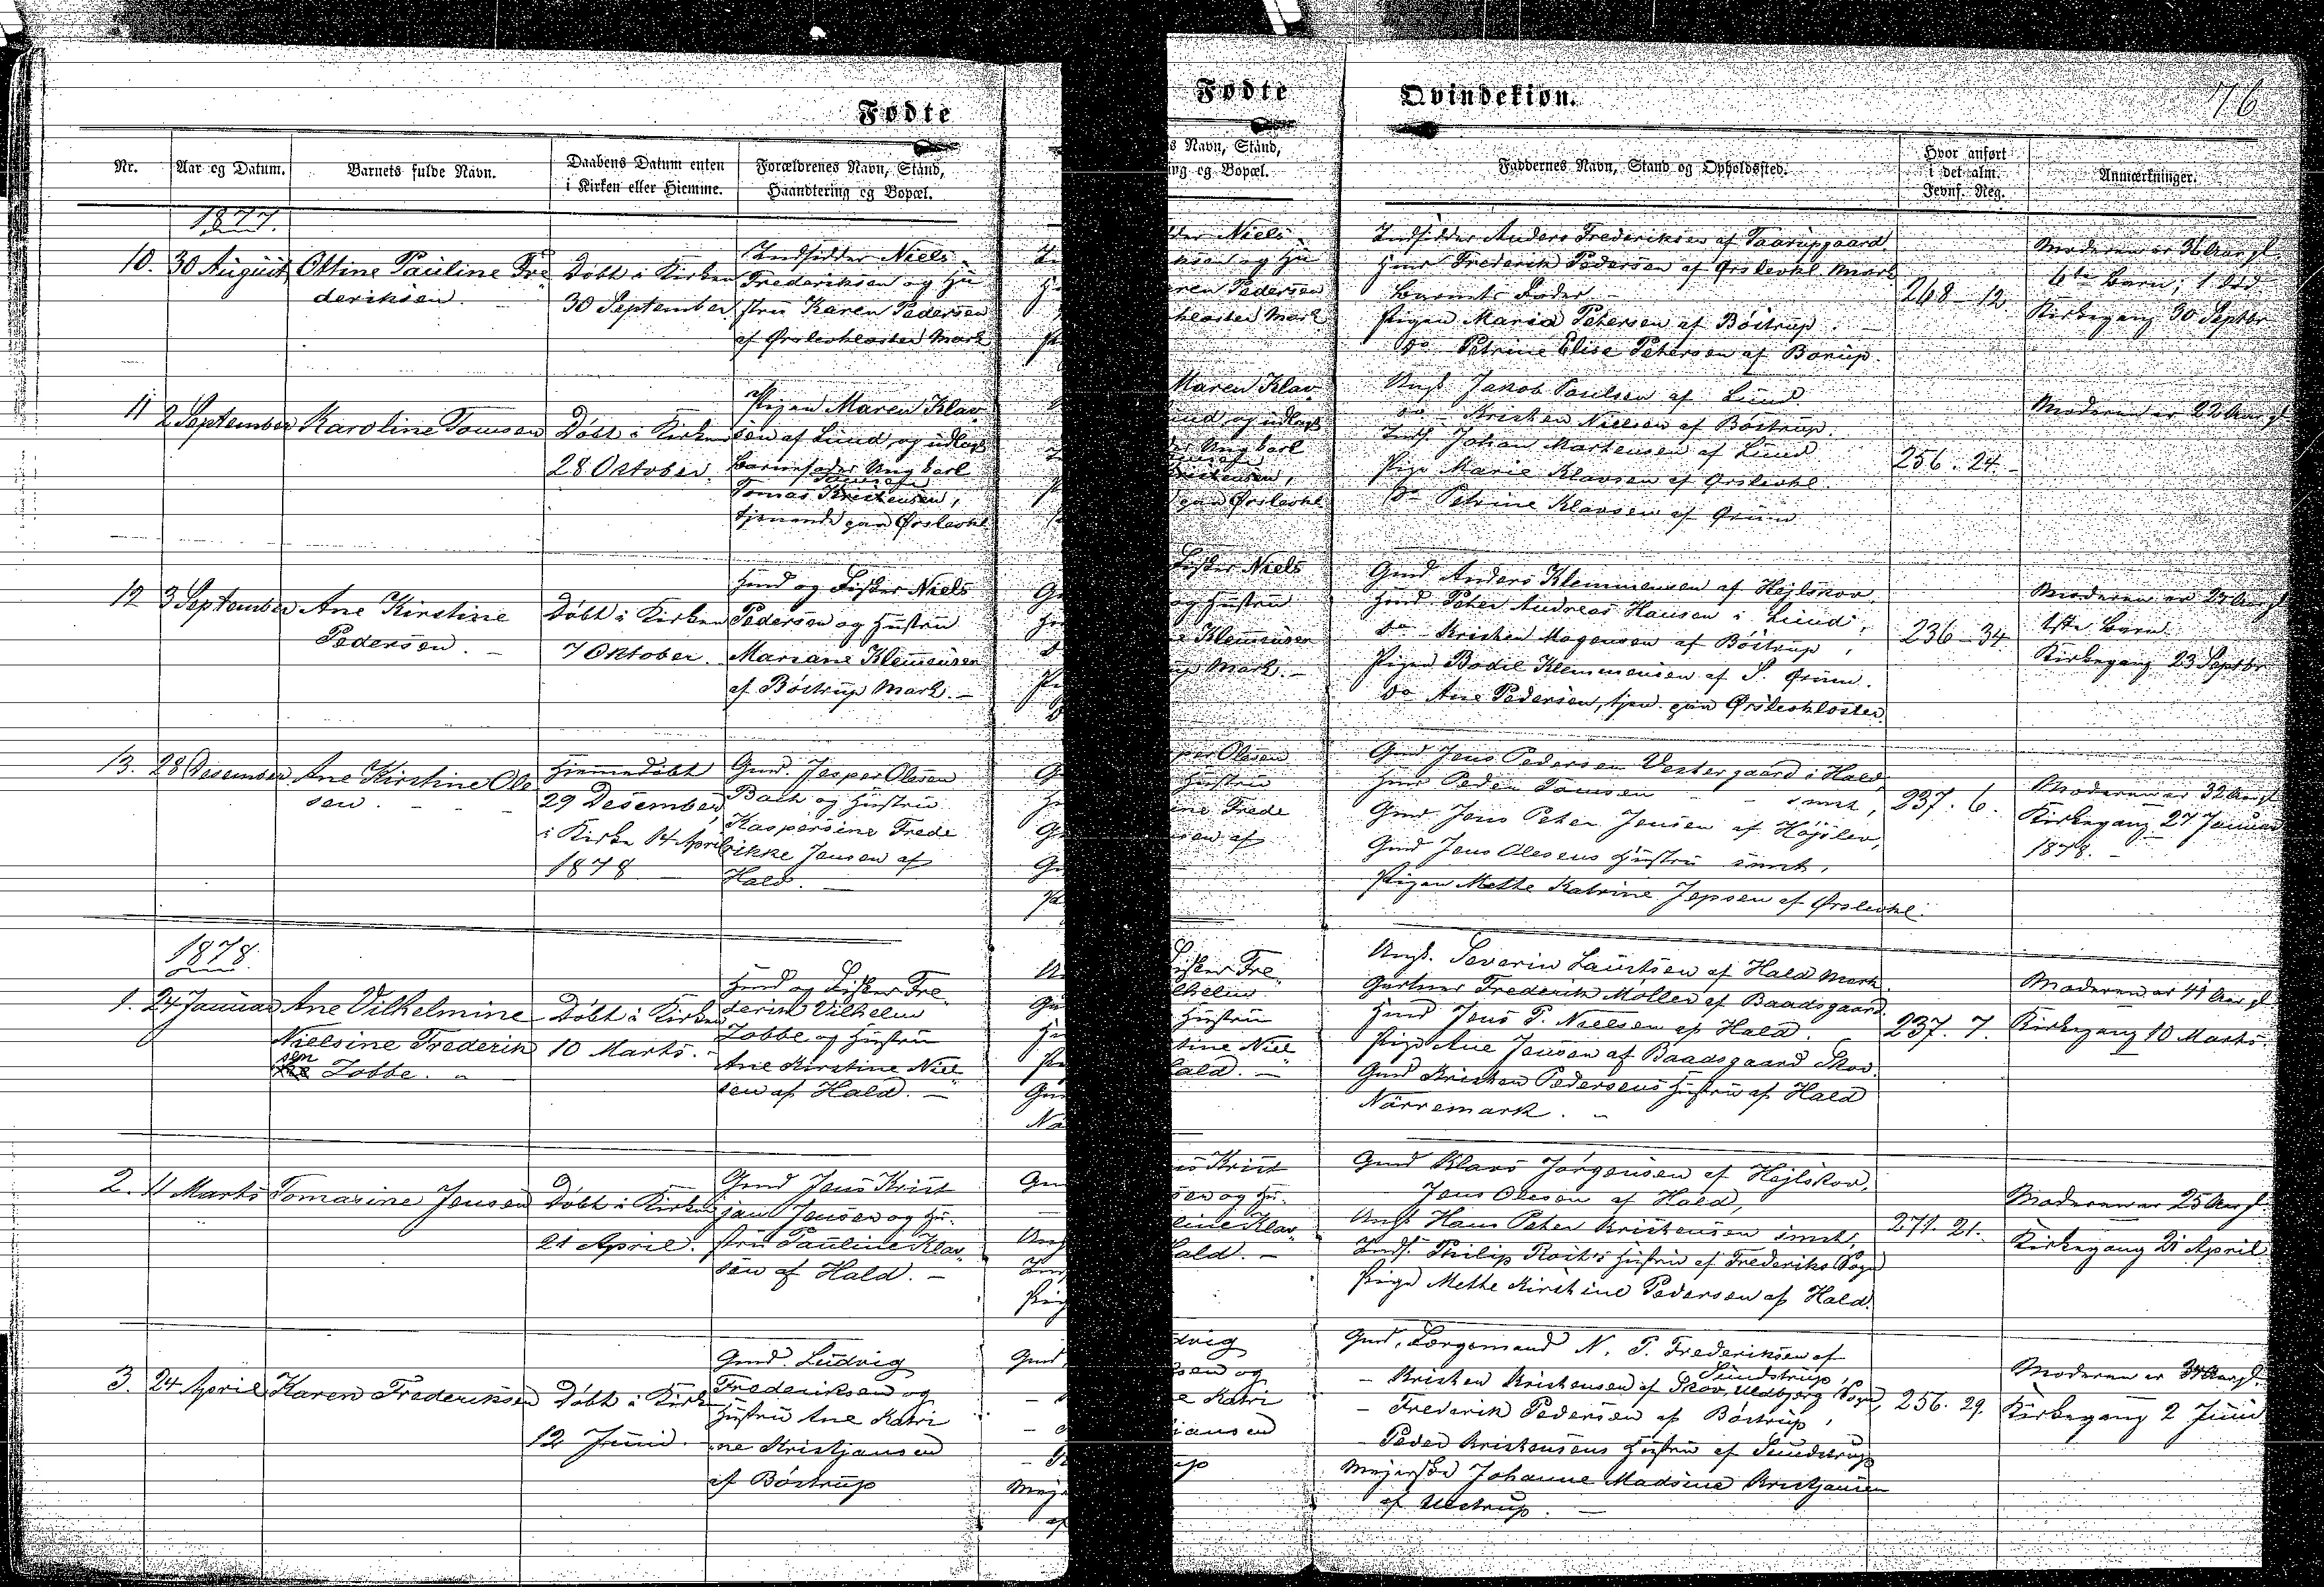 Fødte
Fødte Qvindekiøn.
76
Nr.
Aar og Datum.
Barnets fulde Navn.
Daabens Datum enten
i Kirken eller Hiemme.
Forældrenes Navn, Stand,
Haandtering og Bopæl.
Faddernes Navn, Stand og Opholdssted.
Hvor anført
i det alm.
Jevnf. Reg.
Anmærkninger.
1877.
10.
30 August
Ottine Pauline Fre
deriksen.
Døbt i Kirken
30 September
Indsidder Niels
Frederiksen og Hu
stru Karen Pedersen
af Ørslevkloster Mark
Indsidder Anders Frederiksen af Taarupgaard
Hmd Frederik Pedersen af Ørslevkl. Mark
Barnets Fader
Pigen Maria Petersen af Böstrup.
do Petrine Elise Petersen af Borup.
268-12
Moderen er 36 Aar gl
6te Barn; 1 død
Kirkegang 30 Septbr
11
2 September
Karoline Tomsen
Døbt i Kirken
28 Oktober.
Pigen Maren Klav
sen af Lund, og udlagt
Barnefader Ungkarl
Tomas Kristensen,
tjenende paa Ørslevkl
Ungk Jakob Poulsen af Lund
do Kristen Nielsen af Böstrup.
Inds. Johan Martensen af Lund
Pige Marie Klavsen af Ørslevkl.
do Petrine Klavsen af Grum
256. 24.
Moderen er 22 Aar gl
12
3 September
Ane Kirstine
Pedersen.
Døbt i Kirken
7 Oktober.
Hmd og Fisker Niels
Pedersen og Hustru
Mariane Klemensen
af Böstrup Mark.
Gmd Anders Klemmensen af Hejlskov
Hmd Peter Andreas Hansen i Lund
do Kristen Mogensen af Böstrup,
Pigen Bodil Klemmensen af S. Grum.
do Ane Pedersen, tjen. paa Ørslevkloster
236-34
Moderen er 25 Aar gl
1ste Barn
Kirkegang 23 Septbr
13.
28 Desember
Ane Kirstine Ole
sen.
Hiemmedöbt
29 Desember,
i Kirke 14 April
1878
Gmd. Jesper Olesen
Bach og Hustru
Kaspersine Frede
rikke Jensen af
Hald.
Gmd Jens Pedersen Vestergaard i Hald,
Hmd Peder Tomsen - - smst,
Gmd Jens Peter Jensen af Højslev,
Gmd Jens Olesens Hustru smst,
Pigen Mette Katrine Jepsen af Ørslevkl.
237. 6.
Moderen er 32 Aar gl
Kirkegang 27 Januar
1878.
1878.
1.
24 Januar
Ane Vilhelmine
Nielsine Frederik
sen Lobbe.
Døbt i Kirken
10 Marts.
Hmd og Fisker Fre
derik Vilhelm
Lobbe og Hustru
Ane Kirstine Niel
sen af Hald.
Ungk. Severin Lauritsen af Hald Mark.
Gartner Frederik Möller af Baadsgaard.
Hmd Jens P. Nielsen af Hald.
Pige Ane Jensen af Baadsgaard Skov.
Gmd Kristen Pedersens Hustru af Hald
Nörremark.
237. 7.
Moderen er 41 Aar gl
Kirkegang 10 Marts.
2.
11 Marts
Tomasine Jensen
Døbt i Kirken
21 April.
Gmd Jens Krist
jan Jensen og Hu-
stru Pauline Klav
sen af Hald.
Gmd Klavs Jörgensen af Hejlskov,
Jens Olesen af Hald,
Ungk Hans Peter Kristensen smst,
Inds. Philip Roits Hustru af Frederiks Sogn
Pige Mette Kirstine Pedersen af Hald.
271. 21.
Moderen er 25 Aar gl
Kirkegang 21 April
3.
24 April
Karen Frederiksen
Döbt i Kirken
12 Juni.
Gmd. Ludvig
Frederiksen og
Hustru Ane Katri
ne Kristjansen
af Böstrup
Gmd, Sorgemand N. P. Frederiksen af
Sundstrup,
- Kristen Kristensen af Skov, Uldbjerg Sogn,
- Frederik Pedersen af Böstrup,
- Peder Kristensens Hustru af Sundstrup
Mejerske Johanne Madsine Kristjansen
af Ulstrup.
256. 29.
Moderen er 34 Aar gl.
Kirkegang 2 Juni